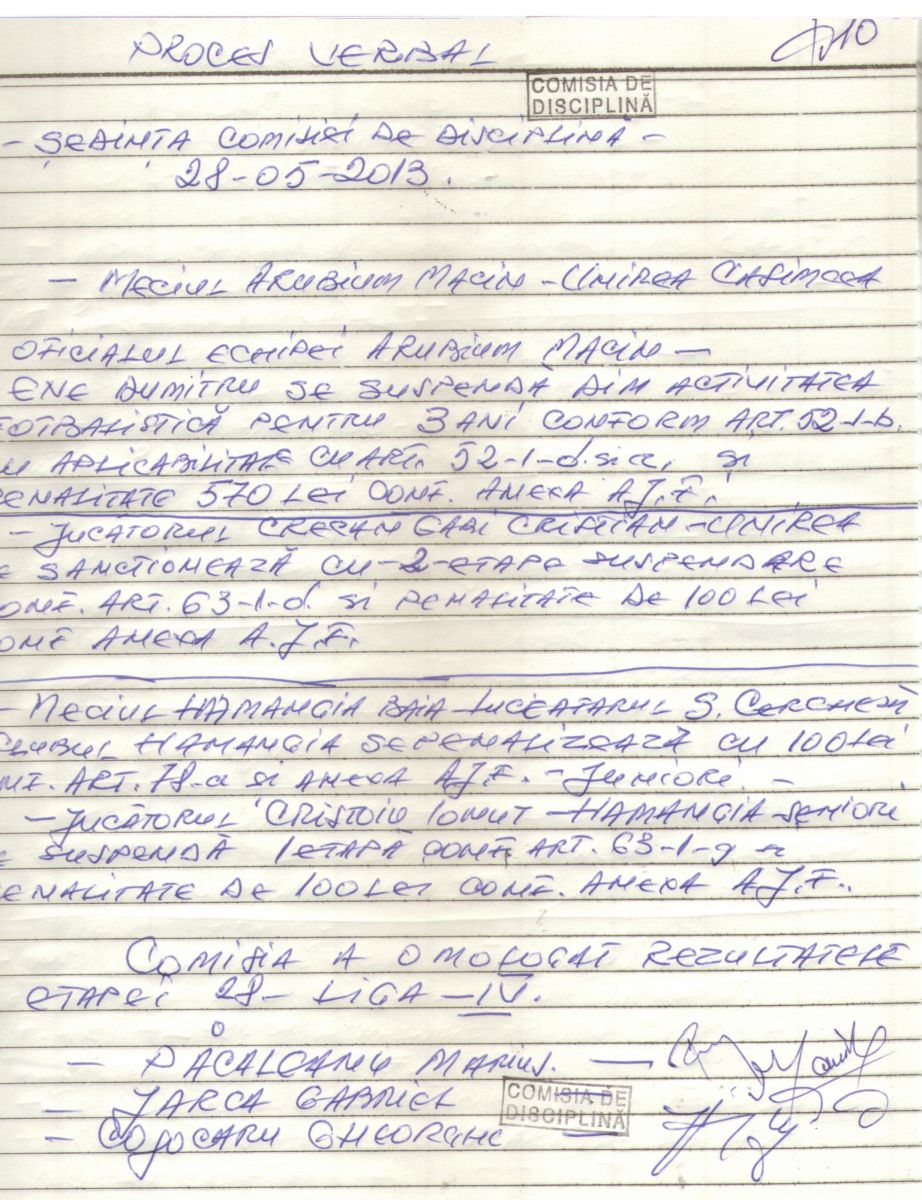 PROCES VERBAL
10
COMISIA DE
DISCIPLINĂ
- ȘEDINȚA COMISIEI DE DISCIPLINA -
28-05-2013.
- MECIUL ARUBIUM MACIN - UNIREA CASIMCEA
OFICIALUL ECHIPEI ARUBIUM MACIN -
ENE DUMITRU SE SUSPENDĂ DIN ACTIVITATEA
FOTBALISTICĂ PENTRU 3 ANI CONFORM ART. 52-1-b.
CU APLICABILITATE CU ART. 52-1-d. si a, și
PENALITATE 570 LEI CONF. ANEXA A.J.F.
- JUCATORUL CRECAN GABI CRISTIAN - UNIREA
SE SANCTIONEAZĂ CU -2- ETAPE SUSPENDARE
CONF. ART. 63-1-d. si PENALITATE DE 100 LEI
CONF ANEXA A.J.F.
- MECIUL HAMANGIA BAIA - LUCEAFARUL S. CERCHEZĂ
CLUBUL HAMANGIA SE PENALIZEAZĂ CU 100 LEI
CONF. ART. 78-a si ANEXA A.J.F. - JUNIORI. -
- JUCĂTORUL CRISTOIU IONUT - HAMANGIA SENIORI
SE SUSPENDĂ 1 ETAPĂ CONF. ART. 63-1-g
PENALITATE DE 100 LEI CONF. ANEXA A.J.F..
COMISIA A OMOLOGAT REZULTATELE
ETAPEI 28 - LIGA - IV.
- PĂCALEANU MARIUS. -
- JARCA GABRIEL
COMISIA DE
DISCIPLINĂ
- COJOCARU GHEORGHE